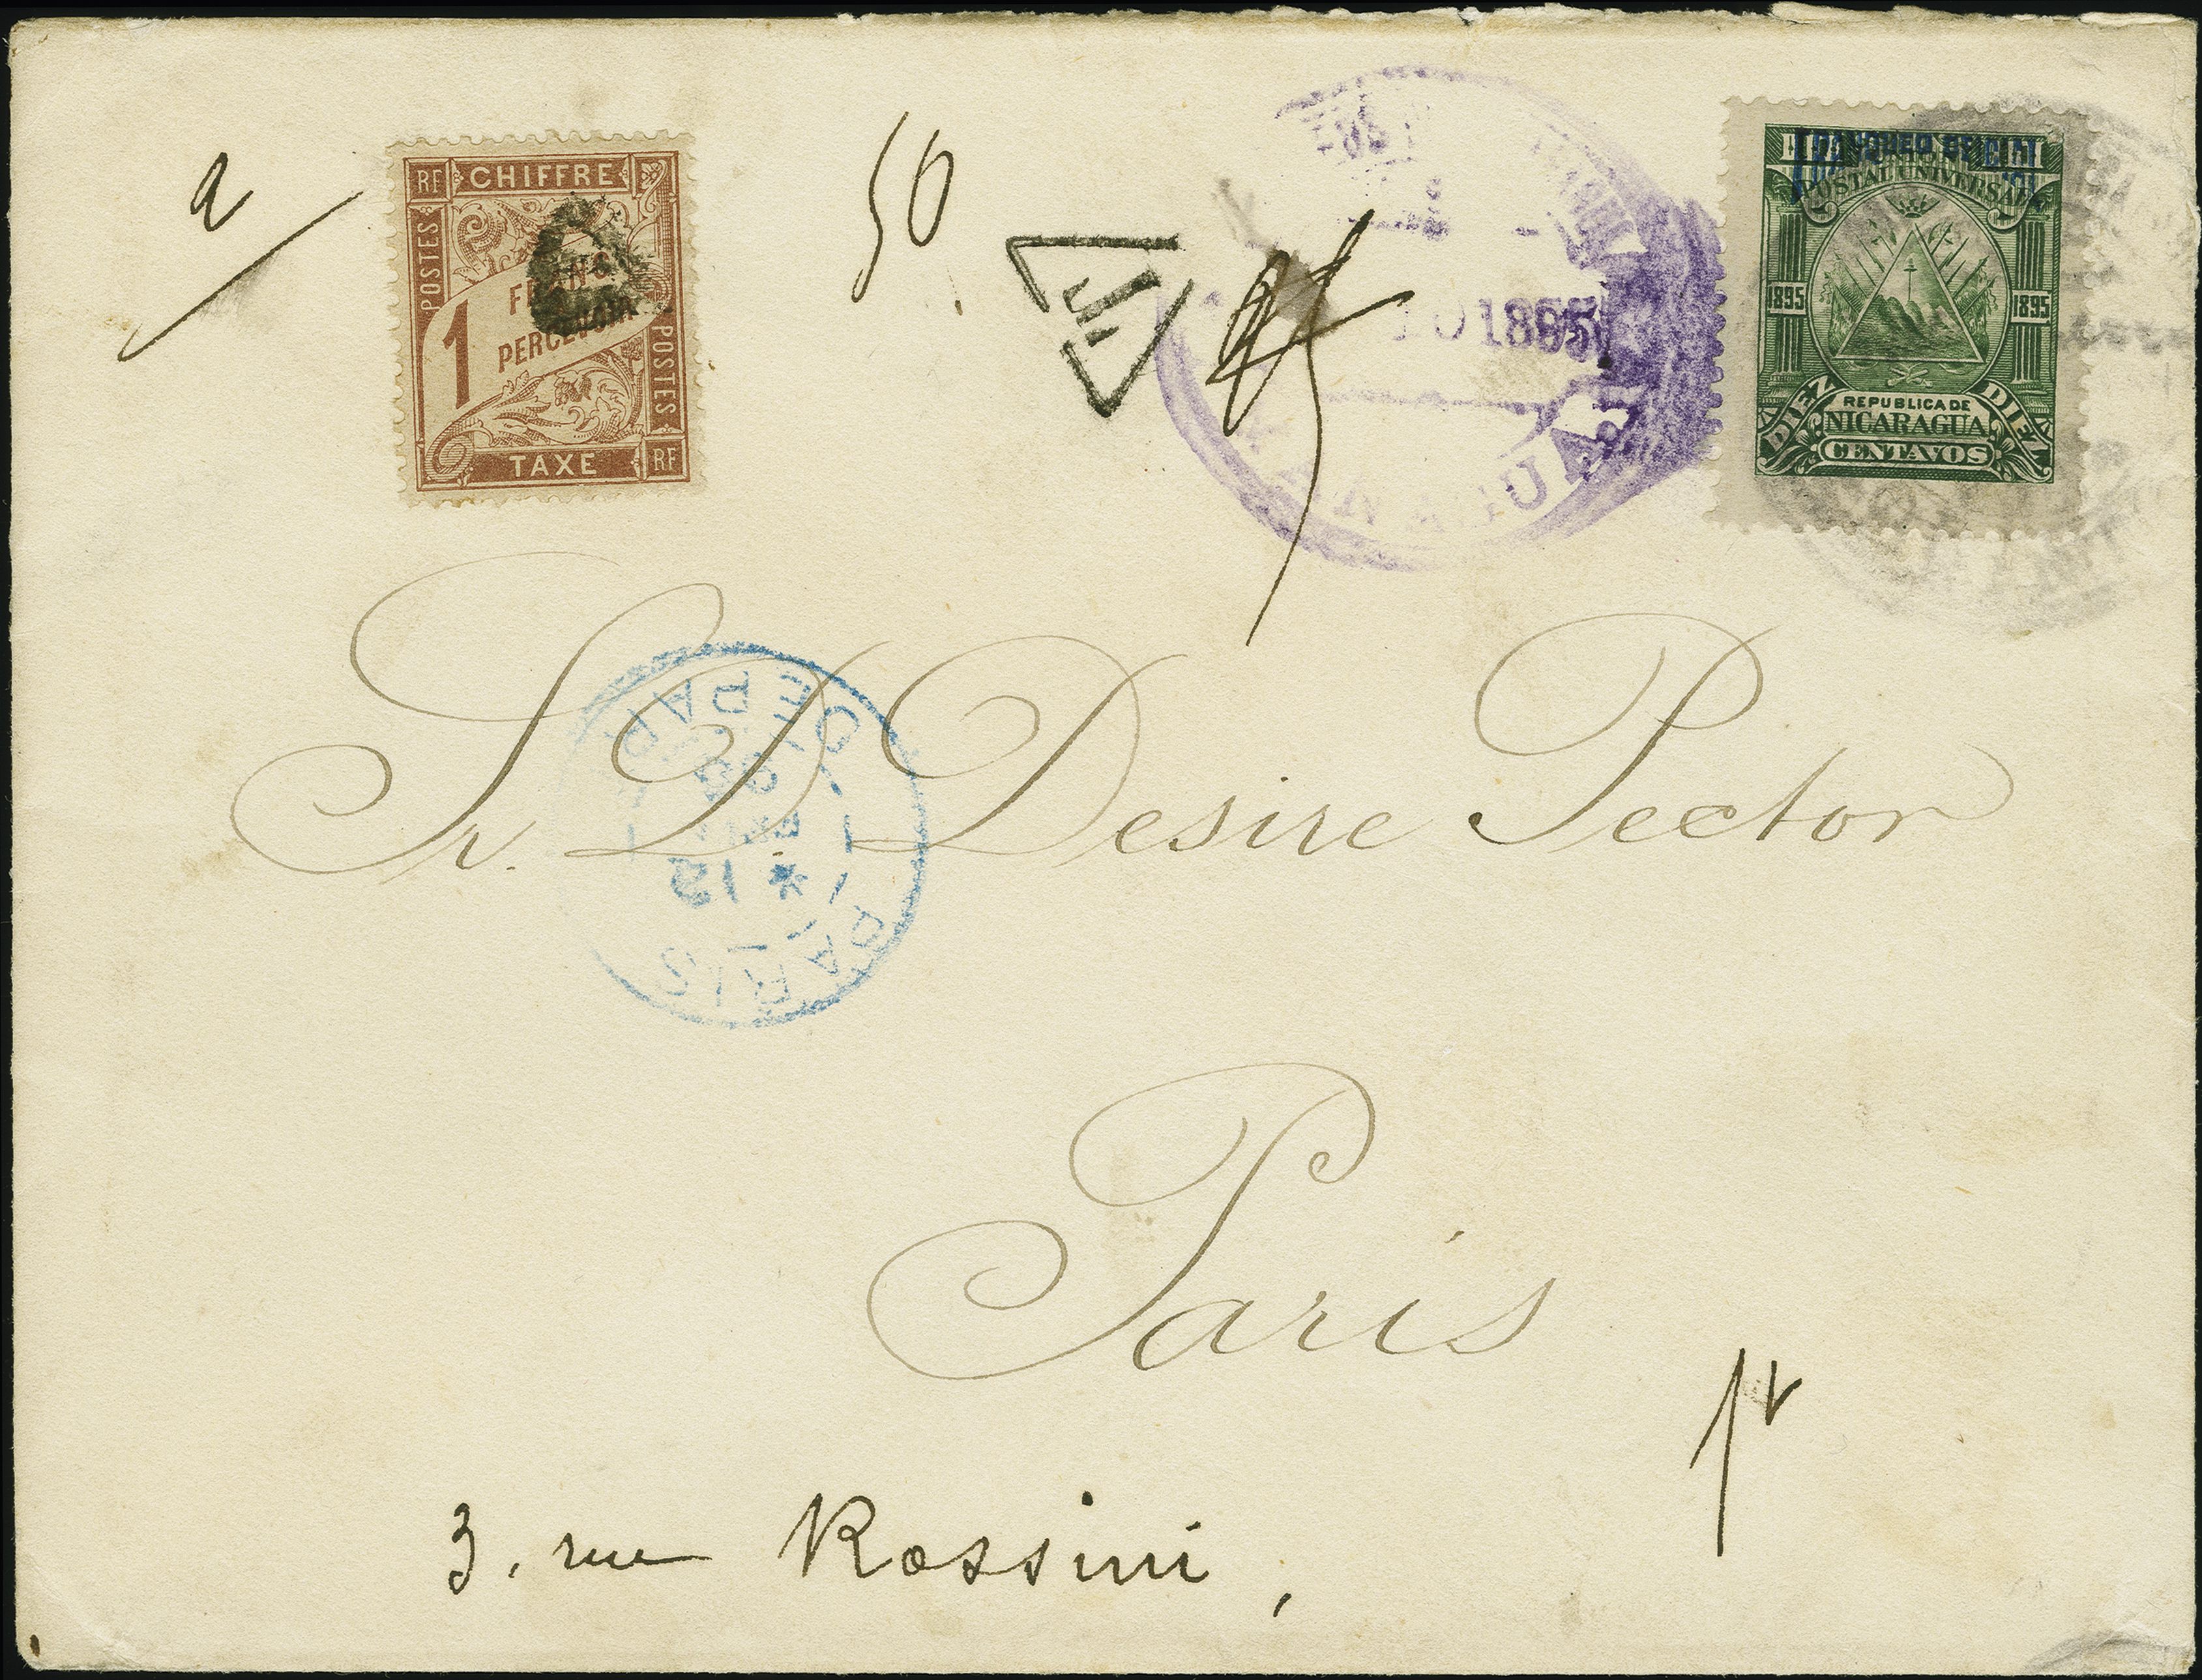 RF CHIFFRE
POSTES
1 FRANC
PERCEVOIR
POSTES
TAXE RF
50
T
1895
MANAGUA
FRANQUEO OFICIAL
UNION
POSTAL UNIVERSAL
1895 1895
DIEZ DIEZ
REPUBLICA DE
NICARAGUA
CENTAVOS
Sr. D. Desire Pector
PARIS
12
Paris
3, rue Rossini,